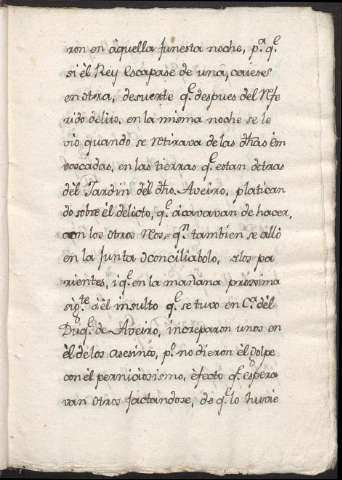 ron en àquella funesta noche, p.ª q.ͤ
si èl Rey Escapase de una, cayese
en otra, desuerte q.ͤ despues del Refe
rido delito, en la misma noche se le
vio quando se retirava de las dhas èm
voscadas, en las tierras q.ͤ estan detras
del Jardin del dho Aveiro, platican
do sobre èl delicto, q.ͤ àcavavan de hacer,
con los otros Reos, q.ⁿ tambien se allò
en la Junta ò conciliabolo, de los pa
rientes, i q.ͤ en la mañana proxima
sig.ᵗᵉ àèl insulto q.ͤ se tuvo en C.ª del
Duq.ͤ de Aveiro, increparon unos en
èl de los asesinos, p.ʳ no dieron èl Golpe
con èl perniciosismo, èfecto q.ͤ espera
van otros jactandose, de q.ͤ lo huvie